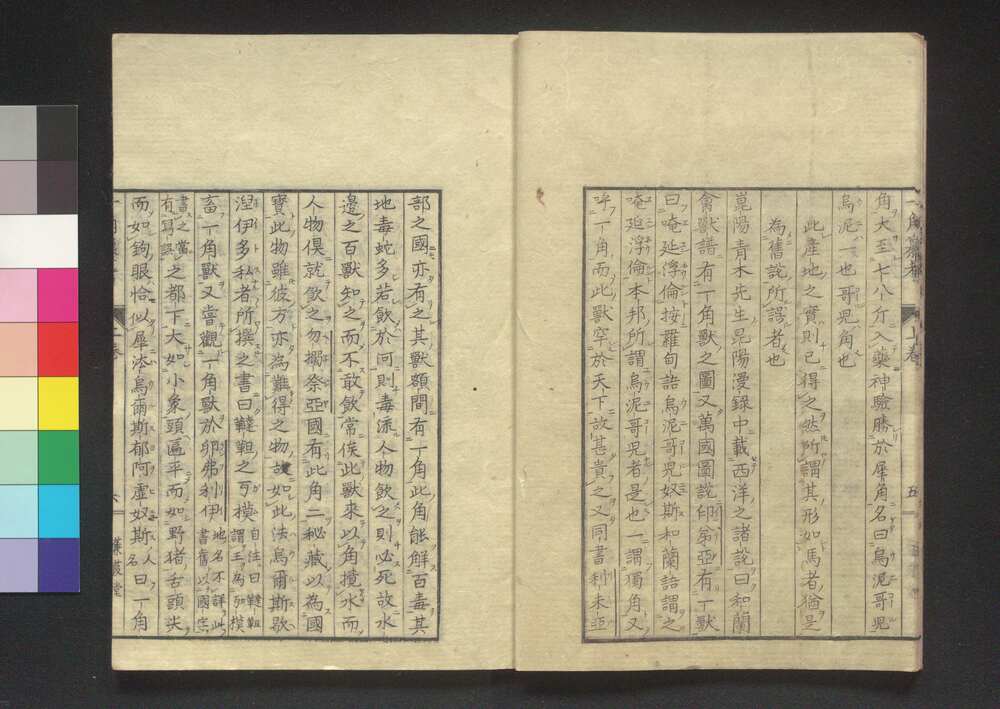 角大至七八斤入藥神驗勝於犀角名曰烏泥哥兒
烏泥一也哥兒角也
此産地之實則已得之然所謂其形如馬者猶是
為舊説所誤者也
崑陽青木先生昆陽漫錄中載西洋之諸説曰和蘭
禽獸譜有一角獸之圖又萬國圖説印弟亞有一獸
曰唵延浮倫按羅甸語烏泥哥兒奴斯和蘭語謂之
唵延浮倫本邦所謂烏泥哥兒者是也一謂獨角又
呼一角而此獸罕於天下故甚貴之又同書利未亞
部之國亦有之其獸額間有一角此角能解百毒其
地毒蛇多若飲於河則毒流人物飲之則必死故水
邊之百獸知之而不敢飲常俟此獸來以角攪水而
人物俱就飲之勿搦祭亞國有此角二秘藏以為國
寳此物雖彼方亦為難得之物故如此法烏爾斯歇
涅伊多私者所撰之書曰韃靼之可模
自注曰韃靼
謂王為可模
畜一角獸又嘗觀一角獸於卯弗利伊
地名不詳此
書舊以國字
書之當
有寫誤
之都下大如小象頭匾平而如野猪舌頭尖
而如鉤眼恰似犀浡烏爾斯郁阿虛奴斯
人
名
曰一角
上卷
五